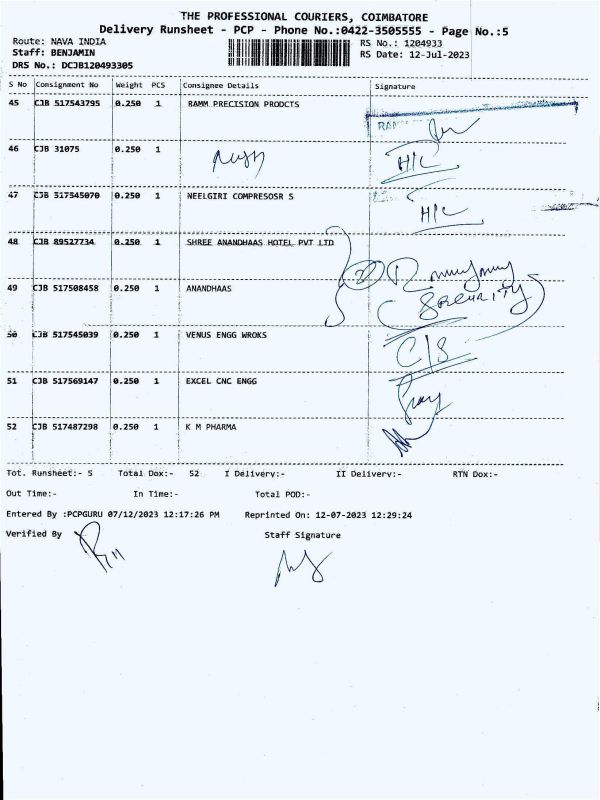 THE PROFESSIONAL COURIERS, COIMBATORE
Delivery Runsheet - PCP - Phone No.:0422-3505555 - Page No.:5
Route: NAVA INDIA RS No.: 1204933
Staff: BENJAMIN RS Date: 12-Jul-2023
DRS No.: DCJB120493305
S No Consignment No Weight PCS Consignee Details Signature
45 CJB 517543795 0.250 1 RAMM PRECISION PRODCTS
46 CJB 31075 0.250 1 H/C
47 CJB 517545070 0.250 1 NEELGIRI COMPRESOSR S H/C
48 CJB 89527734 0.250 1 SHREE ANANDHAAS HOTEL PVT LTD
49 CJB 517508458 0.250 1 ANANDHAAS SECURITY
50 CJB 517545039 0.250 1 VENUS ENGG WROKS C/S
51 CJB 517569147 0.250 1 EXCEL CNC ENGG
52 CJB 517487298 0.250 1 K M PHARMA
Tot. Runsheet:- 5 Total Dox:- 52 I Delivery:- II Delivery:- RTN Dox:-
Out Time:- In Time:- Total POD:-
Entered By :PCPGURU 07/12/2023 12:17:26 PM Reprinted On: 12-07-2023 12:29:24
Verified By Staff Signature